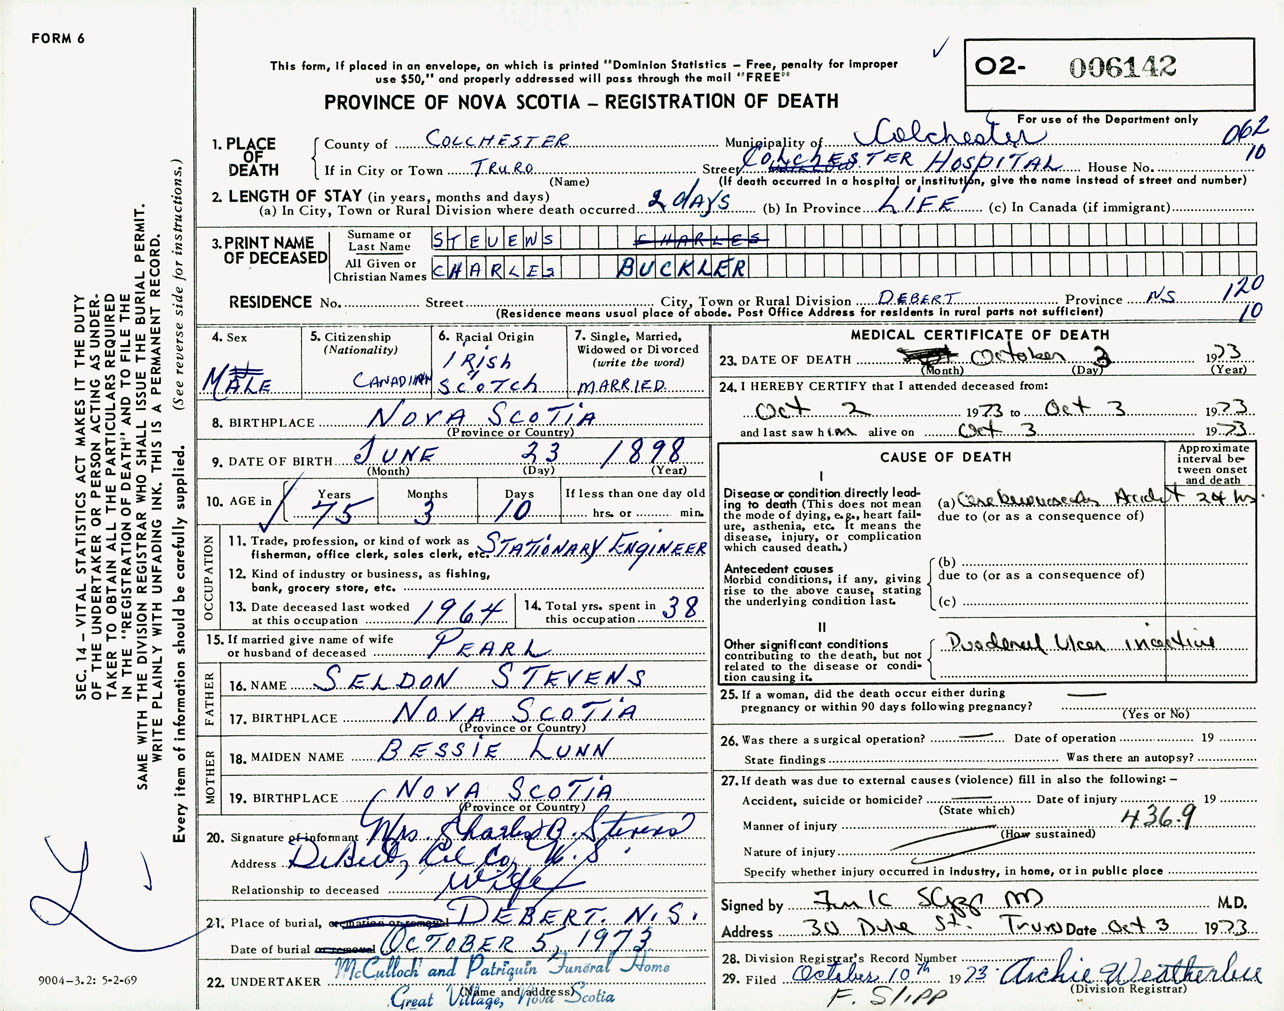 FORM 6
This form, if placed in an envelope, on which is printed "Dominion Statistics – Free, penalty for improper
use $50," and properly addressed will pass through the mail "FREE"
O2- 006142
PROVINCE OF NOVA SCOTIA – REGISTRATION OF DEATH
For use of the Department only
1. PLACE OF DEATH
County of COLCHESTER Municipality of Colchester 062
If in City or Town TRURO Street COLCHESTER HOSPITAL House No. 10
(Name) (If death occurred in a hospital or institution, give the name instead of street and number)
2. LENGTH OF STAY (in years, months and days)
(a) In City, Town or Rural Division where death occurred 2 days (b) In Province LIFE (c) In Canada (if immigrant)
3. PRINT NAME OF DECEASED
Surname or Last Name STEVENS CHARLES
All Given or Christian Names CHARLES BUCKLER
RESIDENCE No. Street City, Town or Rural Division DEBERT Province NS 120
(Residence means usual place of abode. Post Office Address for residents in rural parts not sufficient) 10
4. Sex MALE
5. Citizenship (Nationality) CANADIAN
6. Racial Origin IRISH SCOTCH
7. Single, Married, Widowed or Divorced (write the word) MARRIED
8. BIRTHPLACE NOVA SCOTIA
(Province or Country)
9. DATE OF BIRTH JUNE 23 1898
(Month) (Day) (Year)
10. AGE in Years 75 Months 3 Days 10 If less than one day old
hrs. or min.
OCCUPATION
11. Trade, profession, or kind of work as fisherman, office clerk, sales clerk, etc. STATIONARY ENGINEER
12. Kind of industry or business, as fishing,
bank, grocery store, etc.
13. Date deceased last worked at this occupation 1964
14. Total yrs. spent in this occupation 38
15. If married give name of wife or husband of deceased PEARL
FATHER
16. NAME SELDON STEVENS
17. BIRTHPLACE NOVA SCOTIA
(Province or Country)
MOTHER
18. MAIDEN NAME BESSIE LUNN
19. BIRTHPLACE NOVA SCOTIA
(Province or Country)
20. Signature of informant Mrs. Charles B. Stevens
Address DeBert, Col Co, N.S.
Relationship to deceased Wife
21. Place of burial, cremation or removal DEBERT. N.S.
Date of burial or removal OCTOBER 5, 1973
22. UNDERTAKER McCulloch and Patriquin Funeral Home
(Name and address)
Great Village, Nova Scotia
MEDICAL CERTIFICATE OF DEATH
23. DATE OF DEATH October 3 1973
(Month) (Day) (Year)
24. I HEREBY CERTIFY that I attended deceased from:
Oct 2 1973 to Oct 3 1973
and last saw him alive on Oct 3 1973
CAUSE OF DEATH
Approximate interval between onset and death
I
Disease or condition directly leading to death (This does not mean the mode of dying, e.g., heart failure, asthenia, etc. It means the disease, injury, or complication which caused death.)
(a) Cerebrovascular Accident 24 hrs.
due to (or as a consequence of)
Antecedent causes
Morbid conditions, if any, giving rise to the above cause, stating the underlying condition last.
(b)
due to (or as a consequence of)
(c)
II
Other significant conditions contributing to the death, but not related to the disease or condition causing it.
Duodenal Ulcer inactive
25. If a woman, did the death occur either during
pregnancy or within 90 days following pregnancy? —
(Yes or No)
26. Was there a surgical operation? — Date of operation 19
State findings Was there an autopsy?
27. If death was due to external causes (violence) fill in also the following: –
Accident, suicide or homicide? — Date of injury 19
(State which)
Manner of injury 436.9
(How sustained)
Nature of injury
Specify whether injury occurred in industry, in home, or in public place
Signed by M.D.
Address 30 Duke St. Truro Date Oct 3 1973
28. Division Registrar's Record Number
29. Filed October 10th 1973 Archie Weatherbee
(Division Registrar)
F. Slipp
SEC. 14 – VITAL STATISTICS ACT MAKES IT THE DUTY
OF THE UNDERTAKER OR PERSON ACTING AS UNDER-
TAKER TO OBTAIN ALL THE PARTICULARS REQUIRED
IN THE "REGISTRATION OF DEATH" AND TO FILE THE
SAME WITH THE DIVISION REGISTRAR WHO SHALL ISSUE THE BURIAL PERMIT.
WRITE PLAINLY WITH UNFADING INK. THIS IS A PERMANENT RECORD.
Every item of information should be carefully supplied. (See reverse side for instructions.)
9004-3.2: 5-2-69